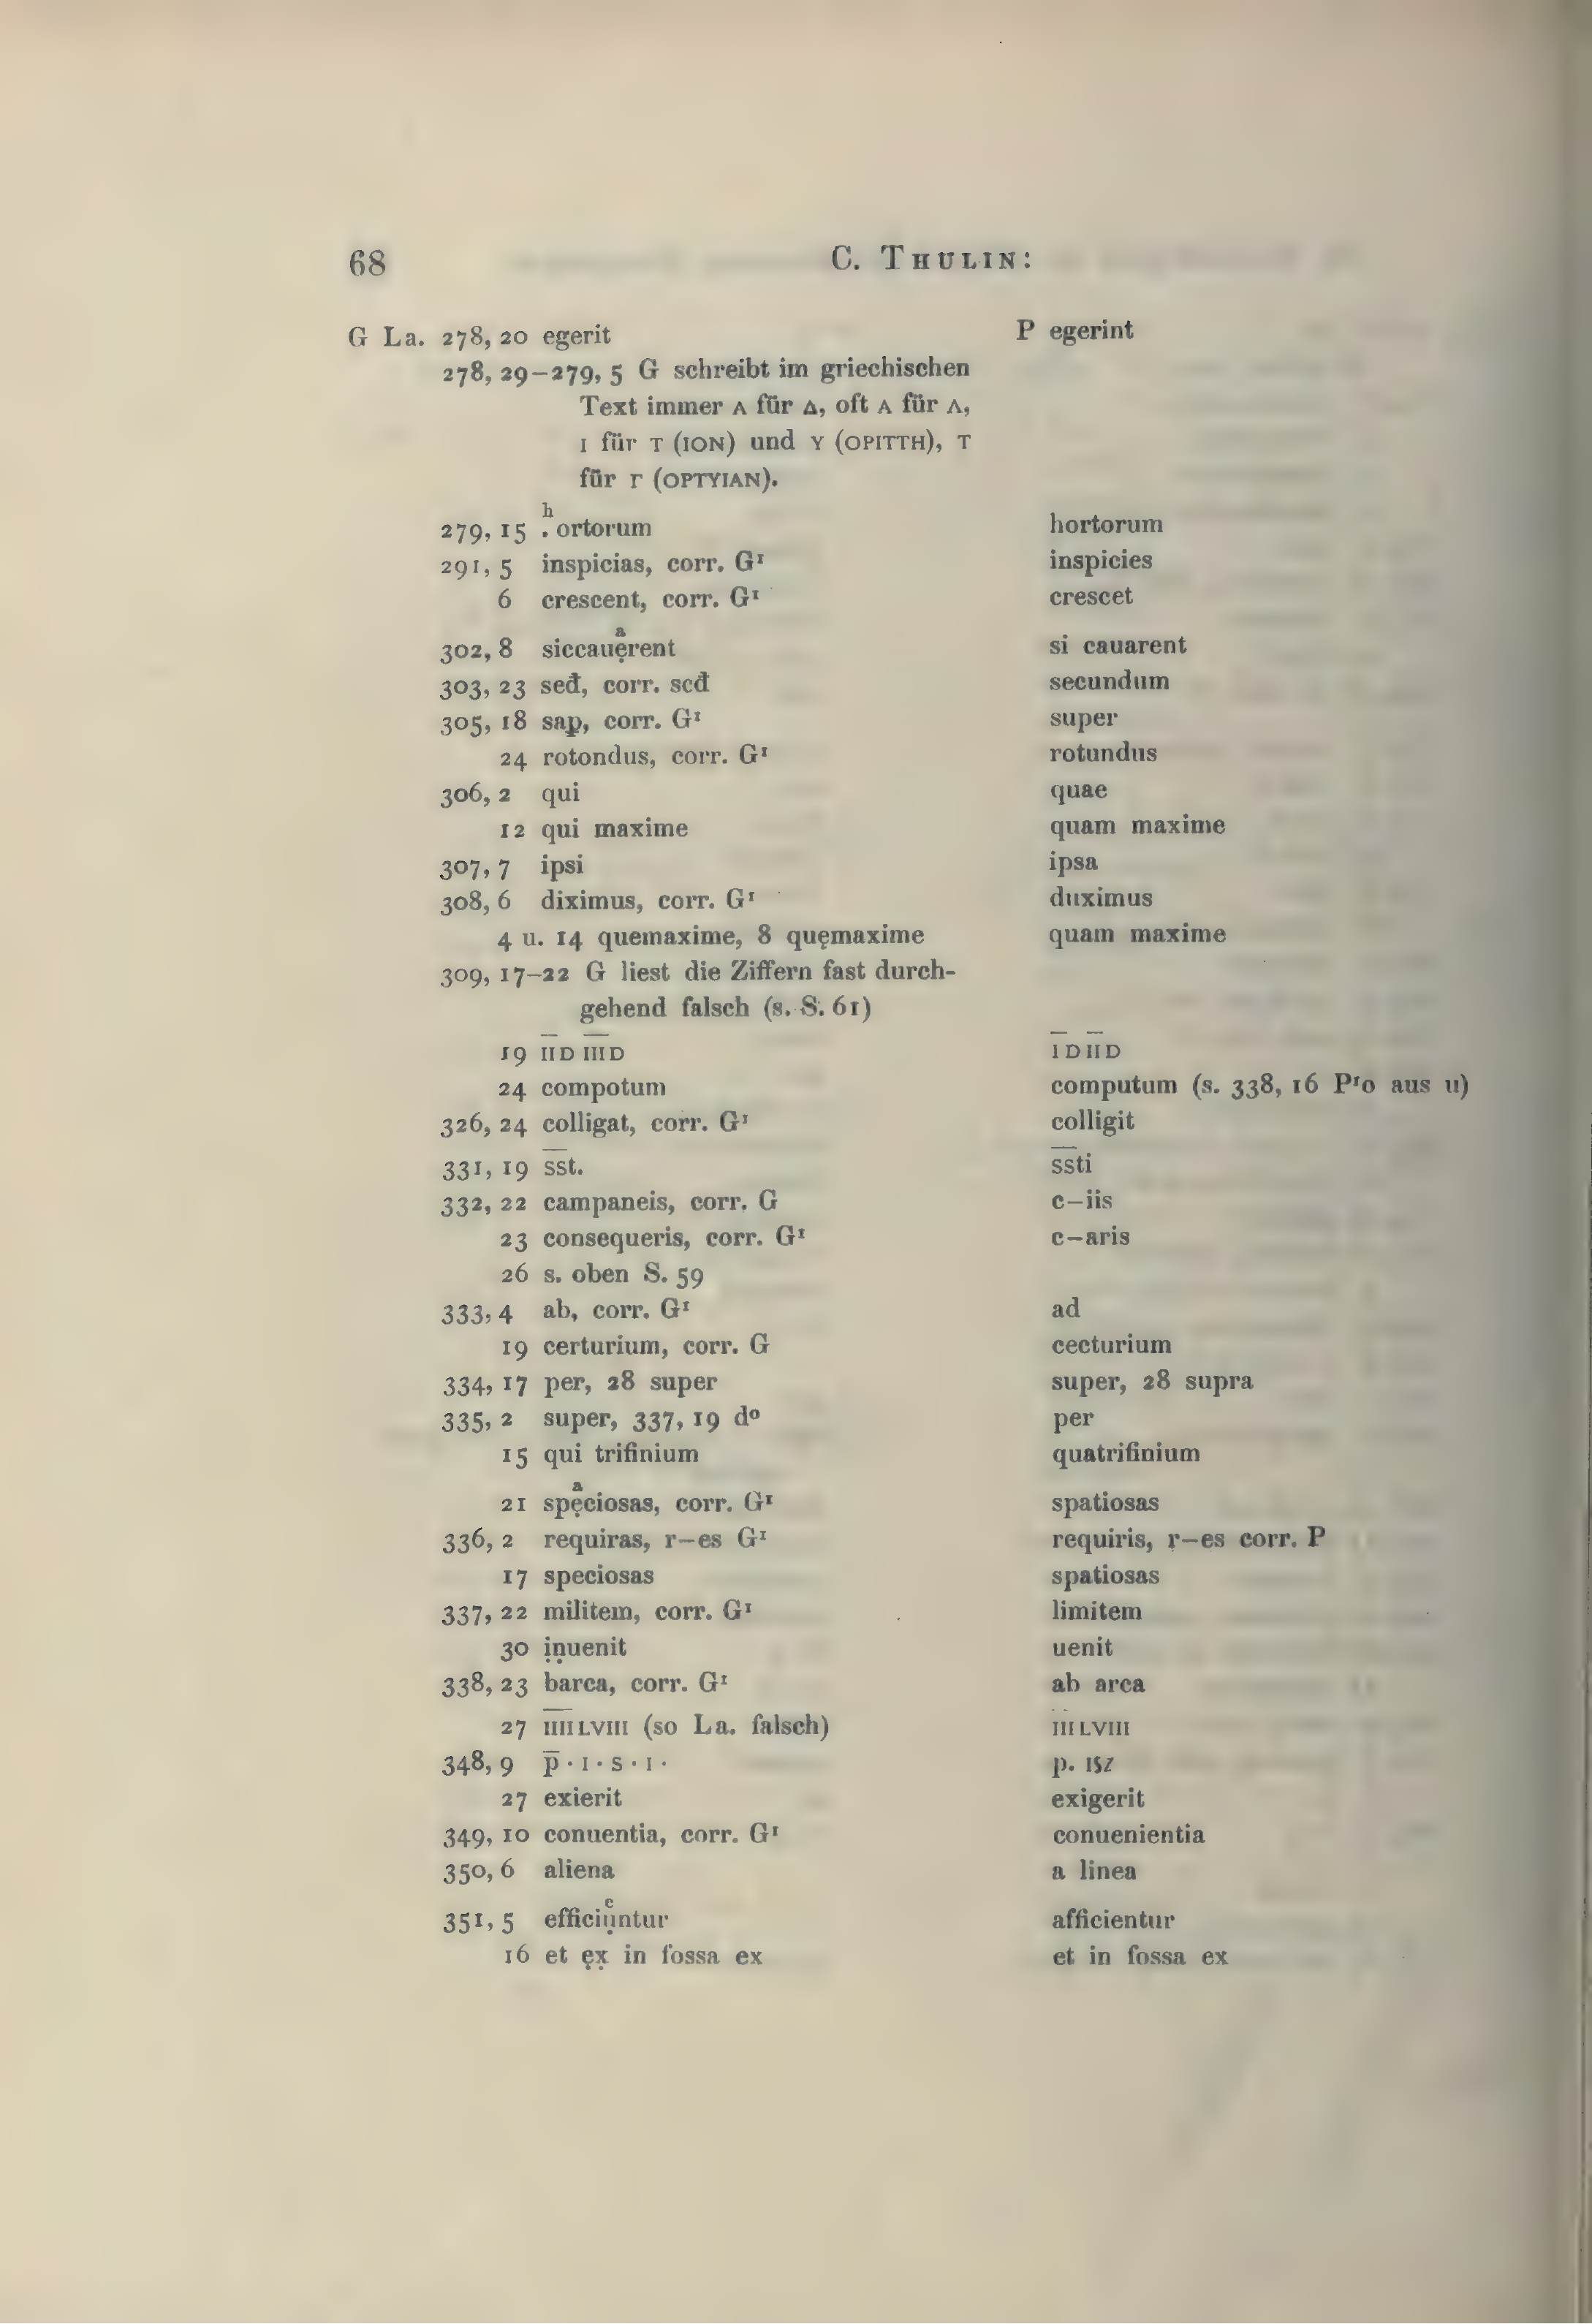 68 C. THULIN:
G La. 278, 20 egerit P egerint
278, 29–279, 5 G schreibt im griechischen
Text immer ᴀ für Δ, oft ᴀ für Λ,
ɪ für ᴛ (ION) und ʏ (OPITTH), ᴛ
für Γ (OPTYIAN).
h
279, 15 . ortorum hortorum
291, 5 inspicias, corr. G¹ inspicies
6 crescent, corr. G¹ crescet
a
302, 8 siccauẹrent si cauarent
303, 23 seđ, corr. scđ secundum
305, 18 sap, corr. G¹ super
24 rotondus, corr. G¹ rotundus
306, 2 qui quae
12 qui maxime quam maxime
307, 7 ipsi ipsa
308, 6 diximus, corr. G¹ duximus
4 u. 14 quemaxime, 8 quęmaxime quam maxime
309, 17–22 G liest die Ziffern fast durch-
gehend falsch (s. S. 61)
19 I̅I̅D I̅I̅I̅D I̅DI̅I̅D
24 compotum computum (s. 338, 16 P¹o aus u)
326, 24 colligat, corr. G¹ colligit
331, 19 s̅s̅t. s̅s̅ti
332, 22 campaneis, corr. G c–iis
23 consequeris, corr. G¹ c–aris
26 s. oben S. 59
333, 4 ab, corr. G¹ ad
19 certurium, corr. G cecturium
334, 17 per, 28 super super, 28 supra
335, 2 super, 337, 19 dº per
15 qui trifinium quatrifinium
a
21 spẹciosas, corr. G¹ spatiosas
336, 2 requiras, r–es G¹ requiris, r–es corr. P
17 speciosas spatiosas
337, 22 militem, corr. G¹ limitem
30 ịṇuenit uenit
338, 23 barca, corr. G¹ ab arca
27 I̅I̅I̅I̅LVIII (so La. falsch) IIILVIII
348, 9 p̅ · I · S · I · p. ISZ
27 exierit exigerit
349, 10 conuentia, corr. G¹ conuenientia
350, 6 aliena a linea
e
351, 5 efficiụntur afficientur
16 et ẹx̣ in fossa ex et in fossa ex